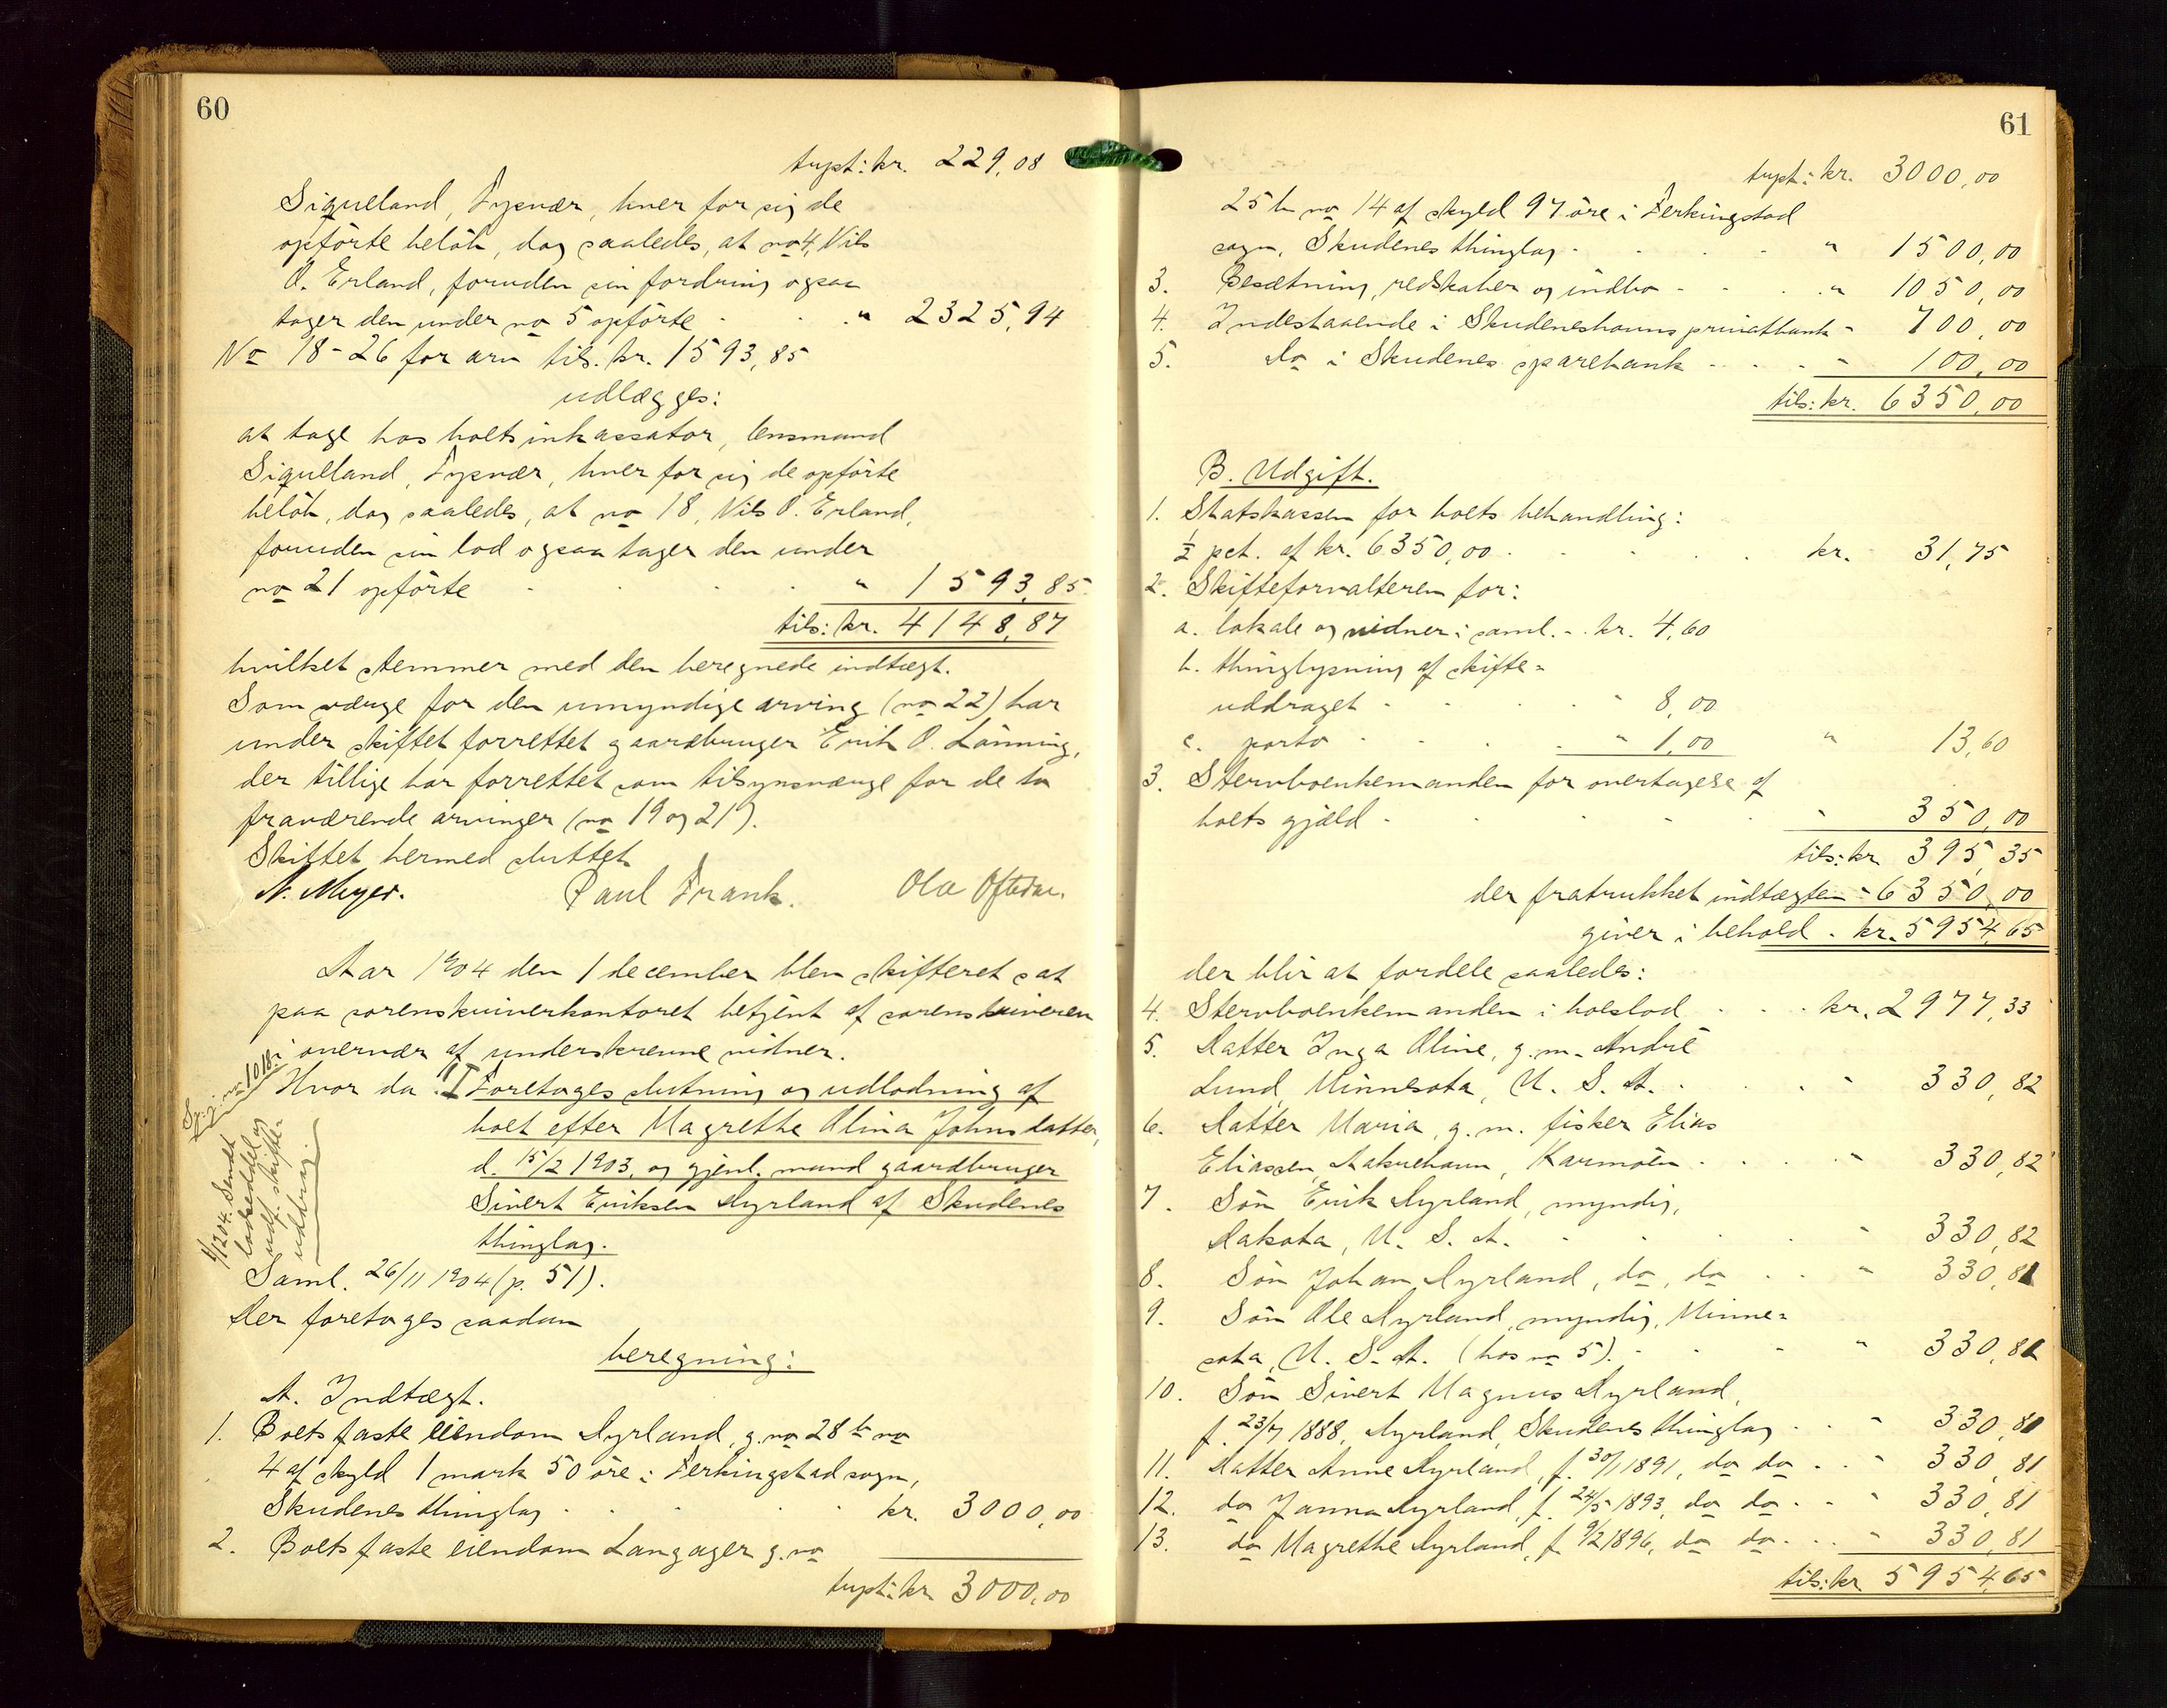 60
trpt: kr. 229,08
Siqueland, Tysvær, hver for sig de
opförte belöb, dog saaledes, at no 4, Nils
O. Erland, foruden sin fordring ogsaa
tager den under no 5 opförte . . . " 2325,94
No 18-26 for arv tils. kr. 1593,85
udlægges:
at tage hos boets inkassator, lensmand
Siqueland, Tysvær, hver for sig de opförte
belöb, dog saaledes, at no 18, Nils O. Erland,
foruden sin lod ogsaa tager den under
no 21 opförte . . . " 1593,85
tils: kr. 4148,87
hvilket stemmer med den beregnede indtægt.
Som værge for den umyndige arving (no 22) har
under skiftet forrettet gaardbruger Erik O. Lönning,
der tillige har forrettet som tilsynsværge for de to
fraværende arvinger (no 19 og 21).
Skiftet hermed sluttet
N. Meyer. Paul Frank. Ola Oftedal.
Aar 1904 den 1 december blev skifteret sat
paa sorenskriverkontoret betjent af sorenskriveren
i overvær af underskrevne vidner.
Hvor da: I Foretoges slutning og udlodning af
boet efter Magrethe Olina Johnsdatter,
d. 15/2 1903, og gjenl. mand gaardbruger
Sivert Eriksen Syrland af Skudenes
thinglag.
1/12 04. Sendt
lodseddel og
udf. skifte-
uddrag.
Saml. 26/11 1904 (p. 51).
Der foretoges saadan
beregning:
A. Indtægt.
1. Boets faste eiendom Syrland, g. no 28 b no
4 af skyld 1 mark 50 öre i Ferkingstad sogn,
Skudenes thinglag . . . kr. 3000,00
2. Boets faste eiendom Langager g. no
trpt: kr. 3000,00
61
trpt: kr. 3000,00
25 b no 14 af skyld 97 öre i Ferkingstad
sogn, Skudenes thinglag . . . " 1500,00
3. Besætning, redskaber og indbo - . . . " 1050,00
4. Indestaaende i Skudeneshavns privatbank - 700,00
5. do i Skudenes sparebank . . . - 100,00
tils: kr. 6350,00
B. Udgift.
1. Statskassen for boets behandling:
½ pct. af kr. 6350,00 . . . kr. 31,75
2. Skifteforvalteren for:
a. lokale og vidner i saml. - . kr. 4,60
b. thinglysning af skifte=
uddraget . . . " 8,00
c. porto . . . " 1,00 " 13,60
3. Stervboenkemanden for overtagelse af
boets gjæld . . . " 350,00
tils: kr 395,35
der fratrukket indtægten - 6350,00
giver i behold . kr. 5954,65
der blir at fordele saaledes:
4. Stervboenkemanden i boeslod . . . kr. 2977,33
5. Datter Inga Oline, g. m. André
Lund, Minnesota, U. S. A. . . . " 330,82
6. Datter Maria, g. m. fisker Elias
Eliassen, Aakrehavn, Karmöen . . . " 330,82
7. Sön Erik Syrland, myndig,
Dakota, U. S. A. . . . " 330,82
8. Sön Johan Syrland, do, do . . . " 330,81
9. Sön Ole Syrland, myndig, Minne=
sota, U. S. A. (hos no 5). . . . " 330,81
10. Sön Sivert Magnus Syrland,
f. 23/7 1888, Syrland, Skudenes thinglag . . . " 330,81
11. Datter Anne Syrland, f. 30/1 1891, do do . . . " 330,81
12. do Janna Syrland, f. 24/5 1893, do do . . . " 330,81
13. do Magrethe Syrland, f. 9/2 1896, do do . . . " 330,81
tils: kr 5954,65